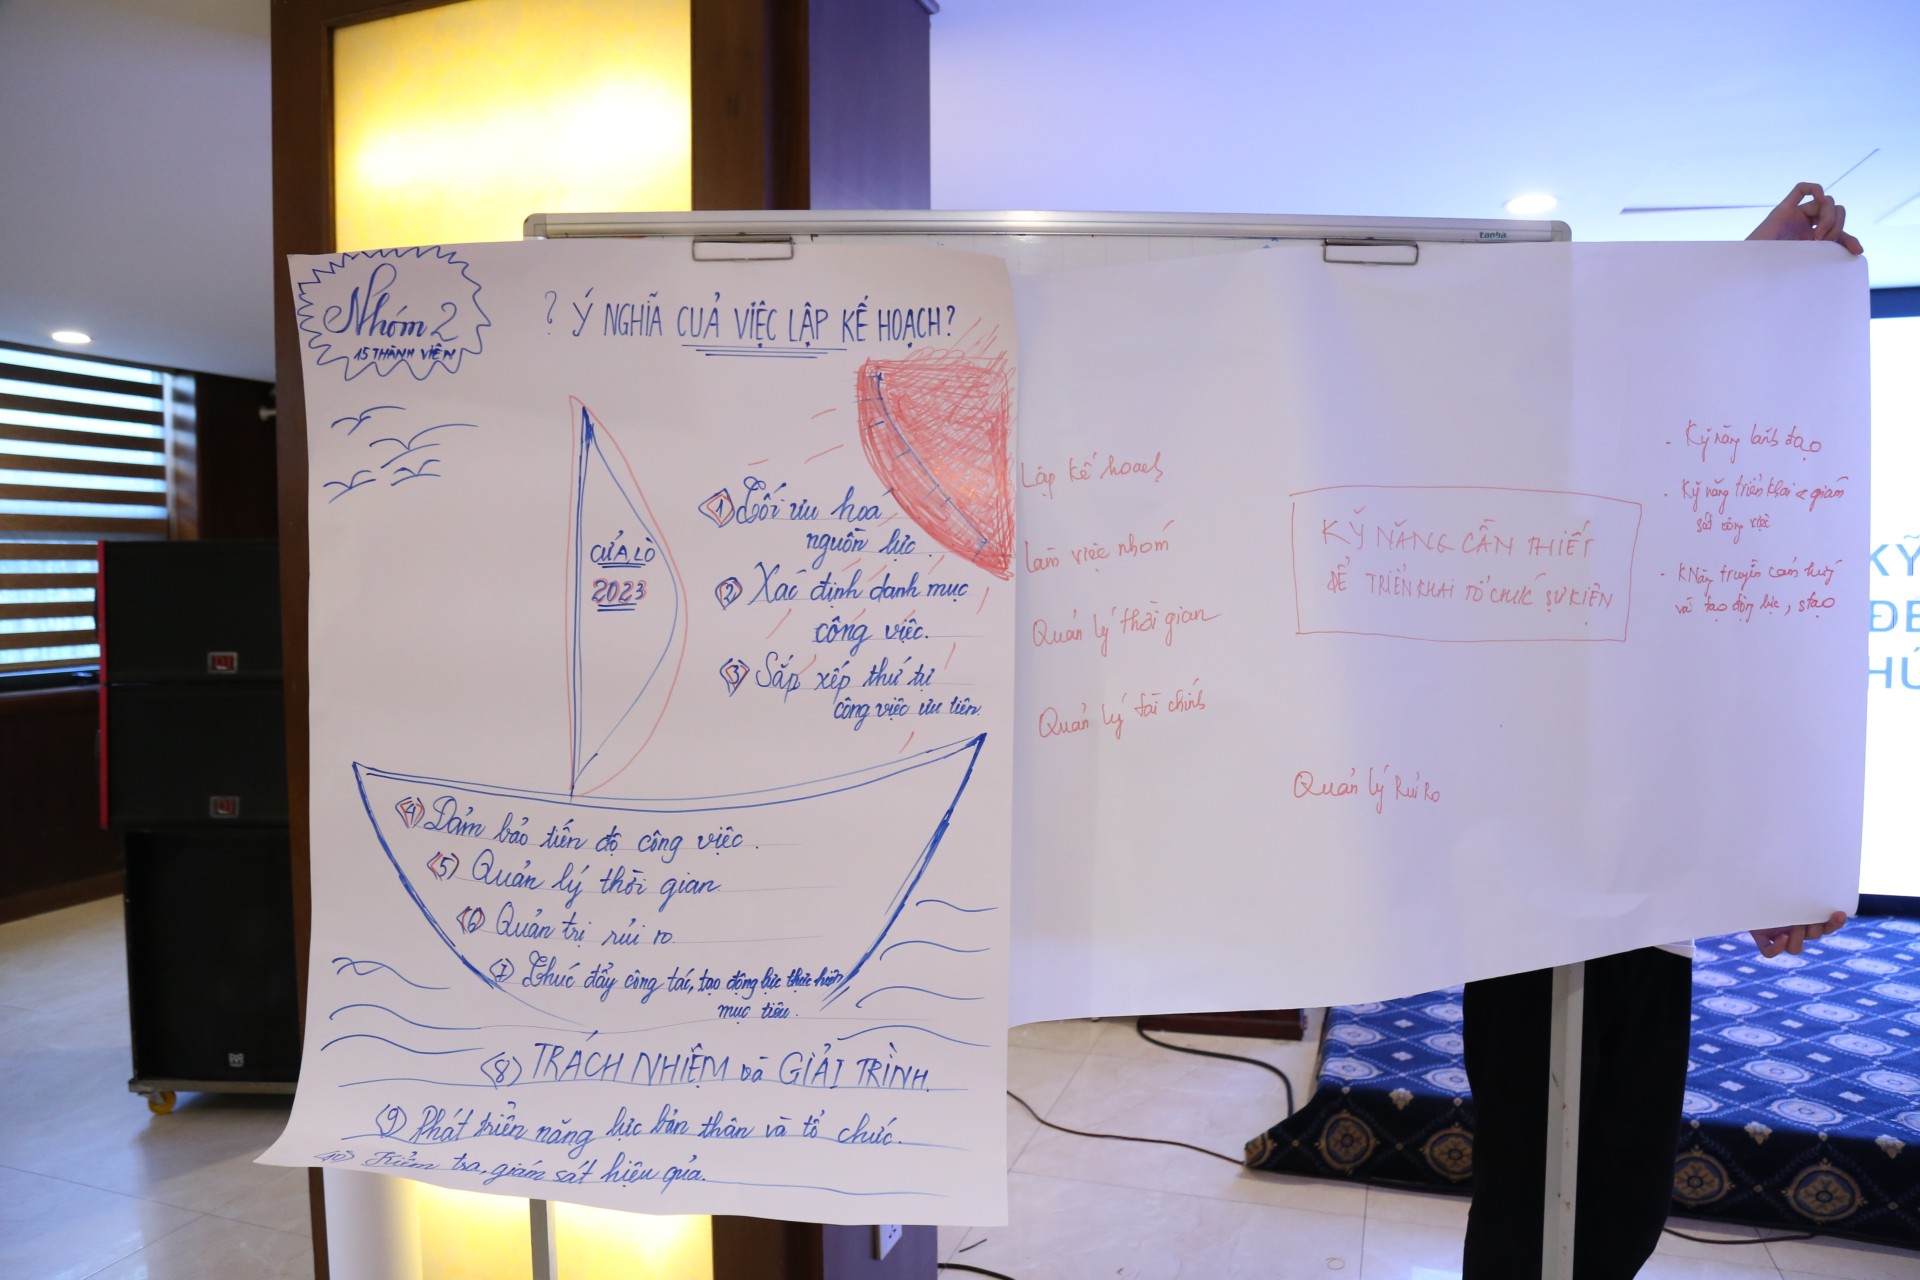 Nhóm 2
15 THÀNH VIÊN
? Ý NGHĨA CUẢ VIỆC LẬP KẾ HOẠCH ?
CỬA LÒ
2023
1 Tối ưu hoá
nguồn lực.
2 Xác định danh mục
công việc.
3 Sắp xếp thứ tự
công việc ưu tiên.
4 Đảm bảo tiến độ công việc.
5 Quản lý thời gian.
6 Quản trị rủi ro.
7 Thúc đẩy công tác, tạo động lực thực hiện
mục tiêu.
(8) TRÁCH NHIỆM và GIẢI TRÌNH.
(9) Phát triển năng lực bản thân và tổ chức.
(10) Kiểm tra, giám sát hiệu quả.
Lập kế hoạch
Làm việc nhóm
Quản lý thời gian
Quản lý tài chính
Quản lý Rủi Ro
KỸ NĂNG CẦN THIẾT
ĐỂ TRIỂN KHAI TỔ CHỨC SỰ KIỆN
- Kỹ năng lãnh đạo
- Kỹ năng triển khai & giám
sát công việc
- KNăng truyền cảm hứng
và tạo động lực, stạo
tanha
KỸ
ĐỂ